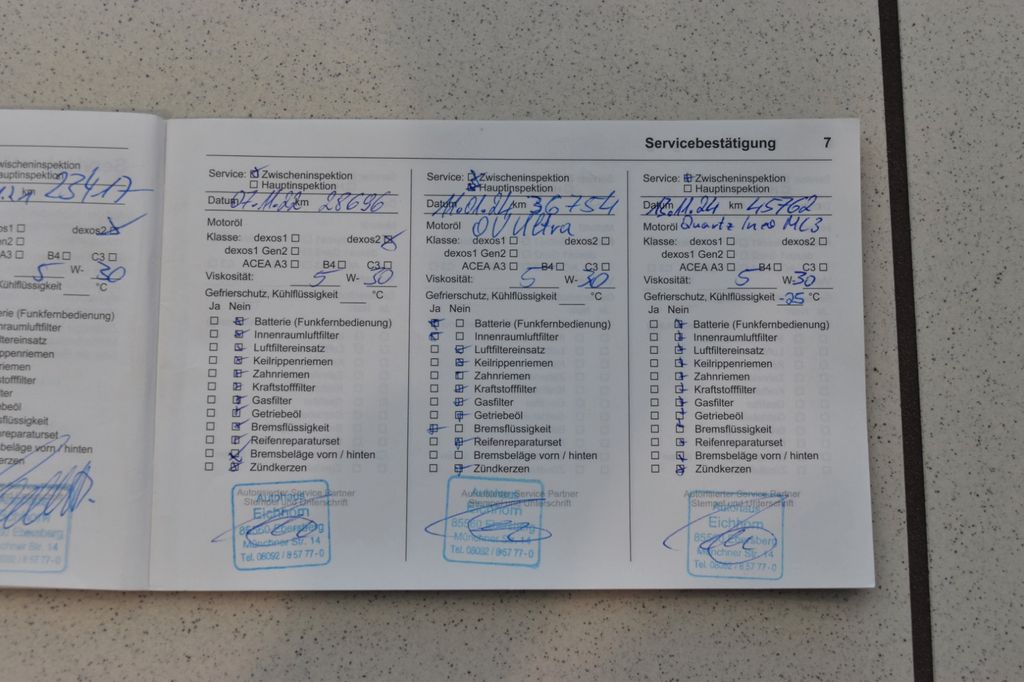 wischeninspektion
auptinspektion
km 23417
os1 ☐ dexos2 ☒
n2 ☐
A3 ☐ B4 ☐ C3 ☐
5 W- 30
Kühlflüssigkeit °C
e (Funkfernbedienung)
nraumluftfilter
ltereinsatz
ppenriemen
iemen
stofffilter
lter
beöl
sflüssigkeit
reparaturset
sbeläge vorn / hinten
erzen
Str. 14
Servicebestätigung 7
Service: ☒ Zwischeninspektion
☐ Hauptinspektion
Datum 07.11.22 km 28696
Motoröl
Klasse: dexos1 ☐ dexos2 ☒
dexos1 Gen2 ☐
ACEA A3 ☐ B4 ☐ C3 ☐
Viskosität: 5 W- 30
Gefrierschutz, Kühlflüssigkeit °C
Ja Nein
☐ ☒ Batterie (Funkfernbedienung)
☐ ☒ Innenraumluftfilter
☐ ☒ Luftfiltereinsatz
☐ ☒ Keilrippenriemen
☐ ☒ Zahnriemen
☐ ☒ Kraftstofffilter
☐ ☒ Gasfilter
☐ ☒ Getriebeöl
☐ ☒ Bremsflüssigkeit
☐ ☒ Reifenreparaturset
☐ ☒ Bremsbeläge vorn / hinten
☐ ☒ Zündkerzen
Autorisierter Service Partner
Stempel und Unterschrift
Autohaus
Eichhorn
85560 Ebersberg
Münchner Str. 14
Tel. 08092 / 8 57 77-0
Service: ☒ Zwischeninspektion
☒ Hauptinspektion
Datum 11.01.24 km 36754
Motoröl 0V Ultra
Klasse: dexos1 ☐ dexos2 ☐
dexos1 Gen2 ☐
ACEA A3 ☐ B4 ☐ C3 ☐
Viskosität: 5 W- 30
Gefrierschutz, Kühlflüssigkeit °C
Ja Nein
☒ ☐ Batterie (Funkfernbedienung)
☒ ☐ Innenraumluftfilter
☐ ☒ Luftfiltereinsatz
☐ ☒ Keilrippenriemen
☐ ☒ Zahnriemen
☐ ☒ Kraftstofffilter
☐ ☒ Gasfilter
☐ ☒ Getriebeöl
☒ ☐ Bremsflüssigkeit
☐ ☒ Reifenreparaturset
☐ ☒ Bremsbeläge vorn / hinten
☐ ☒ Zündkerzen
Autorisierter Service Partner
Stempel und Unterschrift
Autohaus
Eichhorn
85560 Ebersberg
Münchner Str. 14
Tel. 08092 / 8 57 77-0
Service: ☒ Zwischeninspektion
☐ Hauptinspektion
Datum .11.24 km 45762
Motoröl Quartz Ineo MC3
Klasse: dexos1 ☐ dexos2 ☐
dexos1 Gen2 ☐
ACEA A3 ☐ B4 ☐ C3 ☐
Viskosität: 5 W-30
Gefrierschutz, Kühlflüssigkeit -25 °C
Ja Nein
☐ ☒ Batterie (Funkfernbedienung)
☐ ☒ Innenraumluftfilter
☐ ☒ Luftfiltereinsatz
☐ ☒ Keilrippenriemen
☐ ☒ Zahnriemen
☐ ☒ Kraftstofffilter
☐ ☒ Gasfilter
☐ ☒ Getriebeöl
☐ ☒ Bremsflüssigkeit
☐ ☒ Reifenreparaturset
☐ ☒ Bremsbeläge vorn / hinten
☐ ☒ Zündkerzen
Autorisierter Service Partner
Stempel und Unterschrift
Autohaus
Eichhorn
85560 Ebersberg
Münchner Str. 14
Tel. 08092 / 8 57 77-0